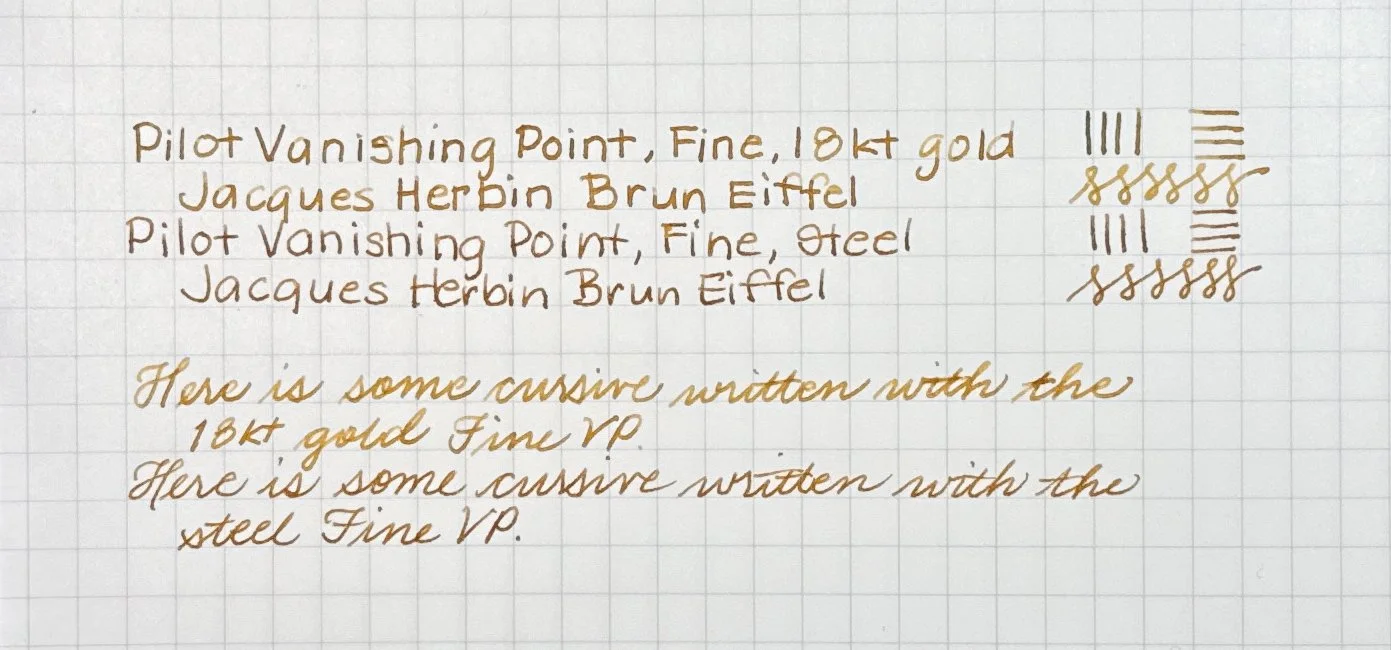 Pilot Vanishing Point, Fine, 18kt gold
Jacques Herbin Brun Eiffel
Pilot Vanishing Point, Fine, Steel
Jacques Herbin Brun Eiffel
Here is some cursive written with the
18kt gold Fine VP.
Here is some cursive written with the
steel Fine VP.